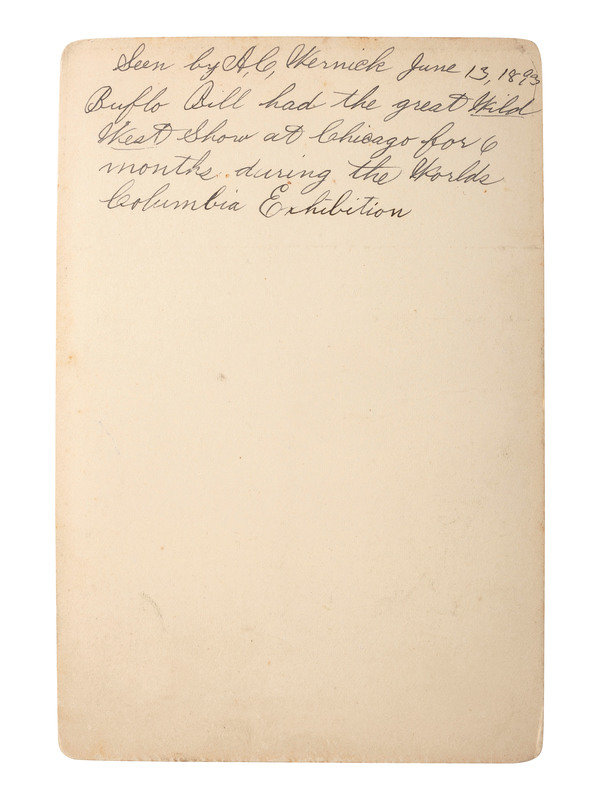 Seen by A, C, Wernick June 13, 1893
Buflo Bill had the great Wild
West Show at Chicago for 6
months during the Worlds
Columbia Exhibition